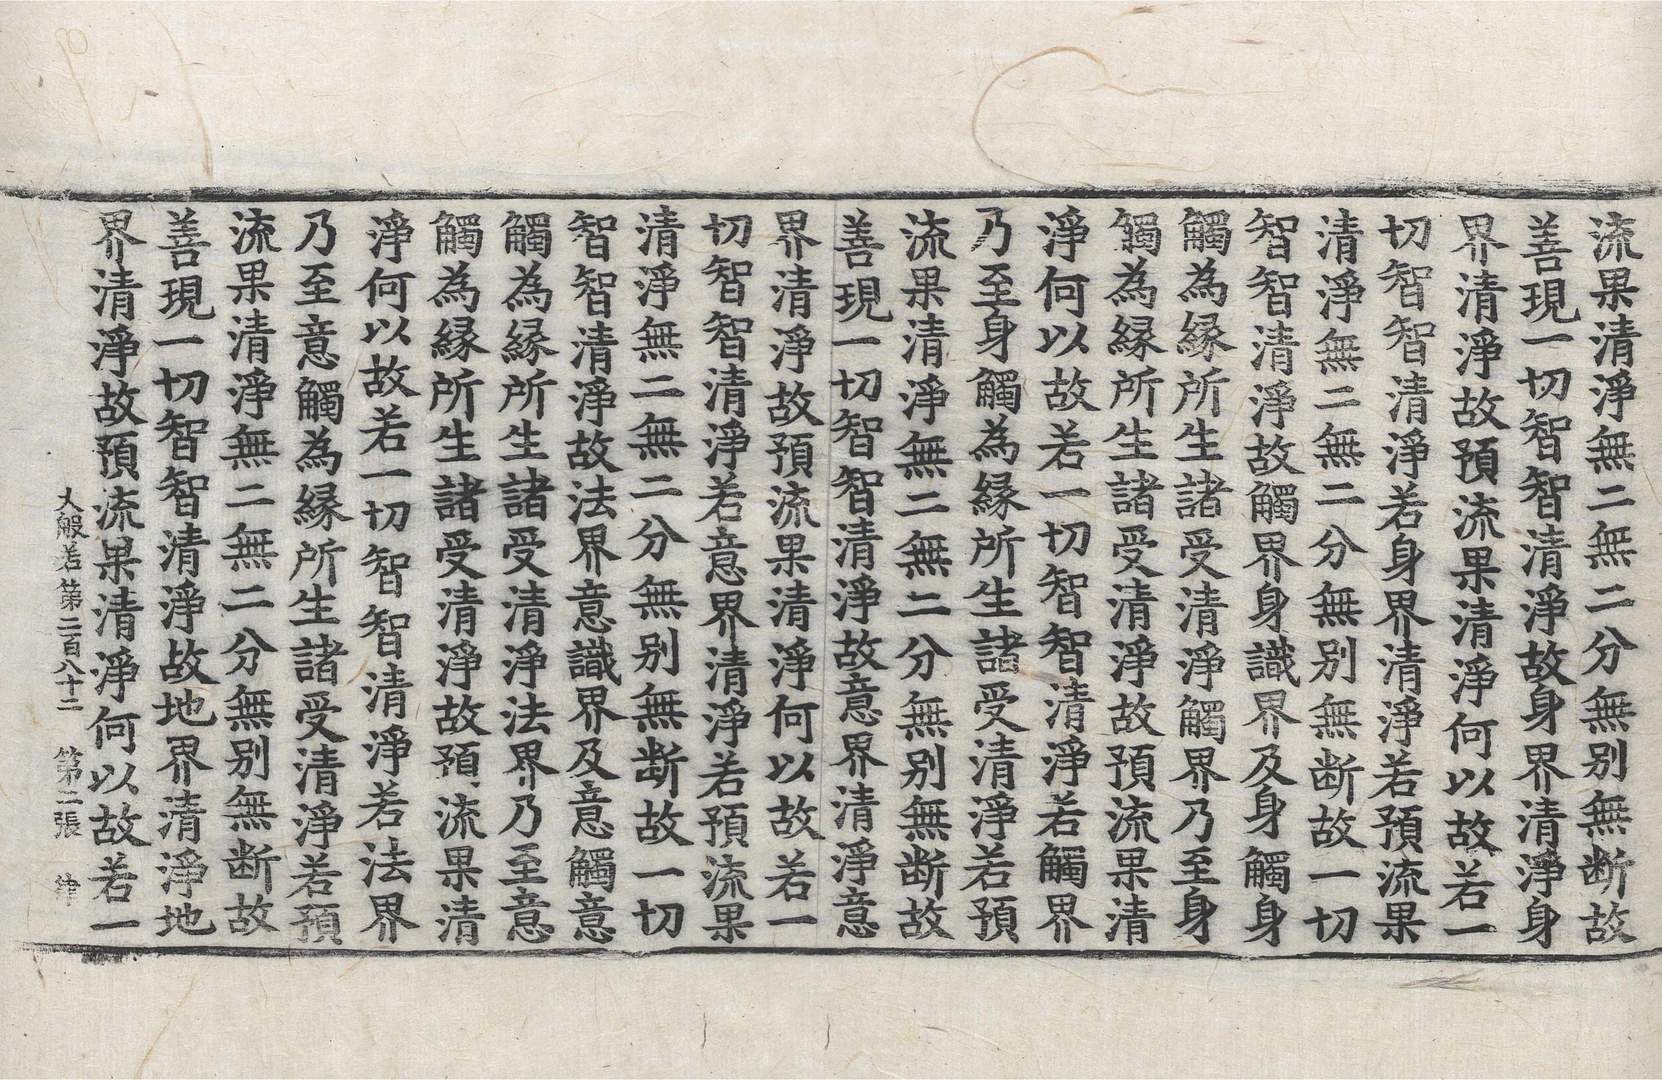 流果清淨無二無二分無别無断故
善現一切智智清淨故身界清淨身
界清淨故預流果清淨何以故若一
切智智清淨若身界清淨若預流果
清淨無二無二分無别無断故一切
智智清淨故觸界身識界及身觸身
觸為縁所生諸受清淨觸界乃至身
觸為縁所生諸受清淨故預流果清
淨何以故若一切智智清淨若觸界
乃至身觸為縁所生諸受清淨若預
流果清淨無二無二分無别無断故
善現一切智智清淨故意界清淨意
界清淨故預流果清淨何以故若一
切智智清淨若意界清淨若預流果
清淨無二無二分無别無断故一切
智智清淨故法界意識界及意觸意
觸為縁所生諸受清淨法界乃至意
觸為縁所生諸受清淨故預流果清
淨何以故若一切智智清淨若法界
乃至意觸為縁所生諸受清淨若預
流果清淨無二無二分無别無断故
善現一切智智清淨故地界清淨地
界清淨故預流果清淨何以故若一
大般若第二百八十二 第二張 律